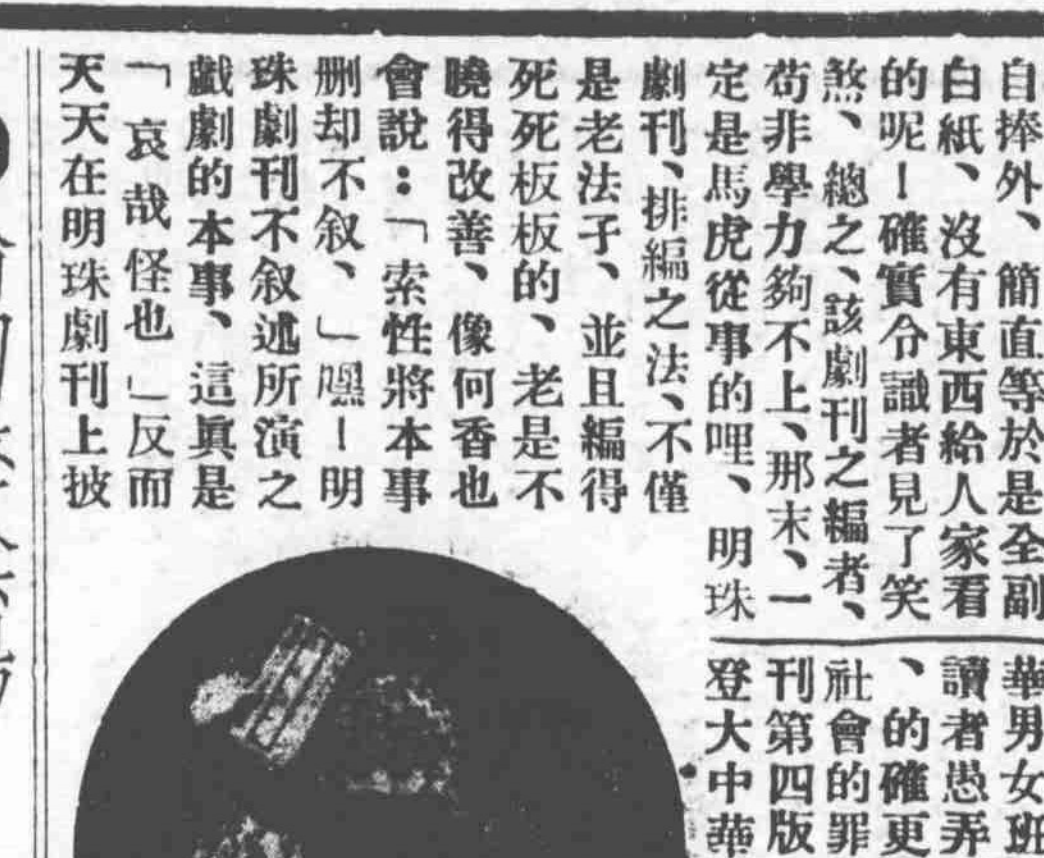 自捧外、簡直等於是全副
白紙、沒有東西給人家看
的呢！確實令識者見了笑
煞、總之、該劇刊之編者、
苟非學力夠不上、那末、一
定是馬虎從事的哩、明珠
劇刊、排編之法、不僅
是老法子、並且編得
死死板板的、老是不
曉得改善、像何香也
會說：「索性將本事
删却不叙、」嘿！明
珠劇刊不叙述所演之
戲劇的本事、這眞是
「哀哉怪也」反而
天天在明珠劇刊上披
華男女班
讀者愚弄
、的確更
社會的罪
刊第四版
登大中華